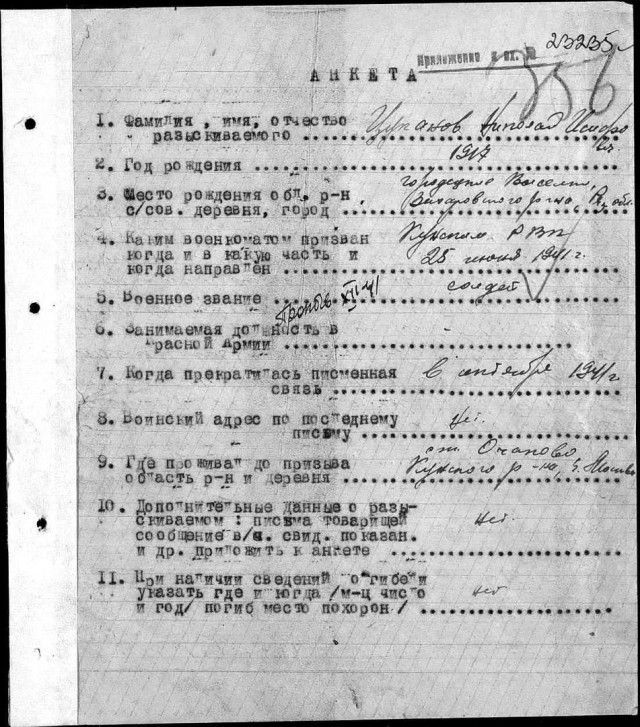 23235с
Приложение к вх. №
356
АНКЕТА
1. Фамилия, имя, отчество
разыскиваемого ..... Цуканов Николай
2. Год рождения ..... 1917
городецкие Выселки,
3. Место рождения обл. р-н
с/сов. деревня, город .....
4. Каким военкоматом призван Кунцевским РВК
когда и в какую часть и
когда направлен ..... 25 июня 1941 г.
5. Военное звание ..... солдат
Пропал б/в XII-41
6. Занимаемая должность в
Красной Армии .....
7. Когда прекратилась писменная
связь ..... в октябре 1941 г
8. Воинский адрес по последнему
письму ..... нет.
ст. Очаково
9. Где проживал до призыва
область р-н и деревня ..... р-на, г. Москва
10. Дополнительные данные о разы-
скиваемом : письма товарищей
сообщение в/ч. свид. показан.
и др. приложить к анкете ..... нет.
11. При наличии сведений о гибели
указать где и когда /м-ц число
и год/ погиб место похорон/ ..... нет